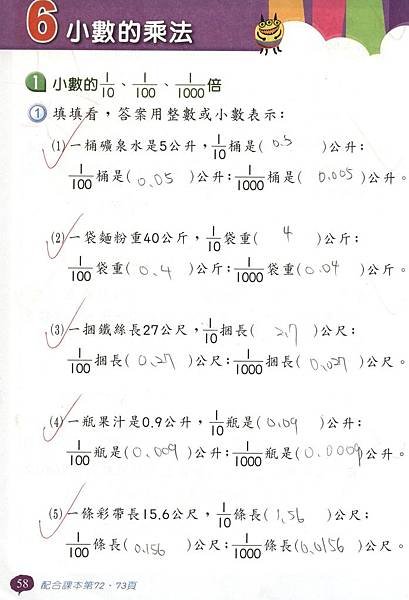 6 小數的乘法
1 小數的1/10、1/100、1/1000倍
① 填填看，答案用整數或小數表示：
⑴一桶礦泉水是5公升，1/10桶是( 0.5 )公升：
1/100桶是( 0.05 )公升：1/1000桶是( 0.005 )公升。
⑵一袋麵粉重40公斤，1/10袋重( 4 )公斤：
1/100袋重( 0.4 )公斤：1/1000袋重( 0.04 )公斤。
⑶一捆鐵絲長27公尺，1/10捆長( 2.7 )公尺：
1/100捆長( 0.27 )公尺：1/1000捆長( 0.027 )公尺。
⑷一瓶果汁是0.9公升，1/10瓶是( 0.09 )公升：
1/100瓶是( 0.009 )公升：1/1000瓶是( 0.0009 )公升。
⑸一條彩帶長15.6公尺，1/10條長( 1.56 )公尺：
1/100條長( 0.156 )公尺：1/1000條長( 0.0156 )公尺。
58 配合課本第72、73頁